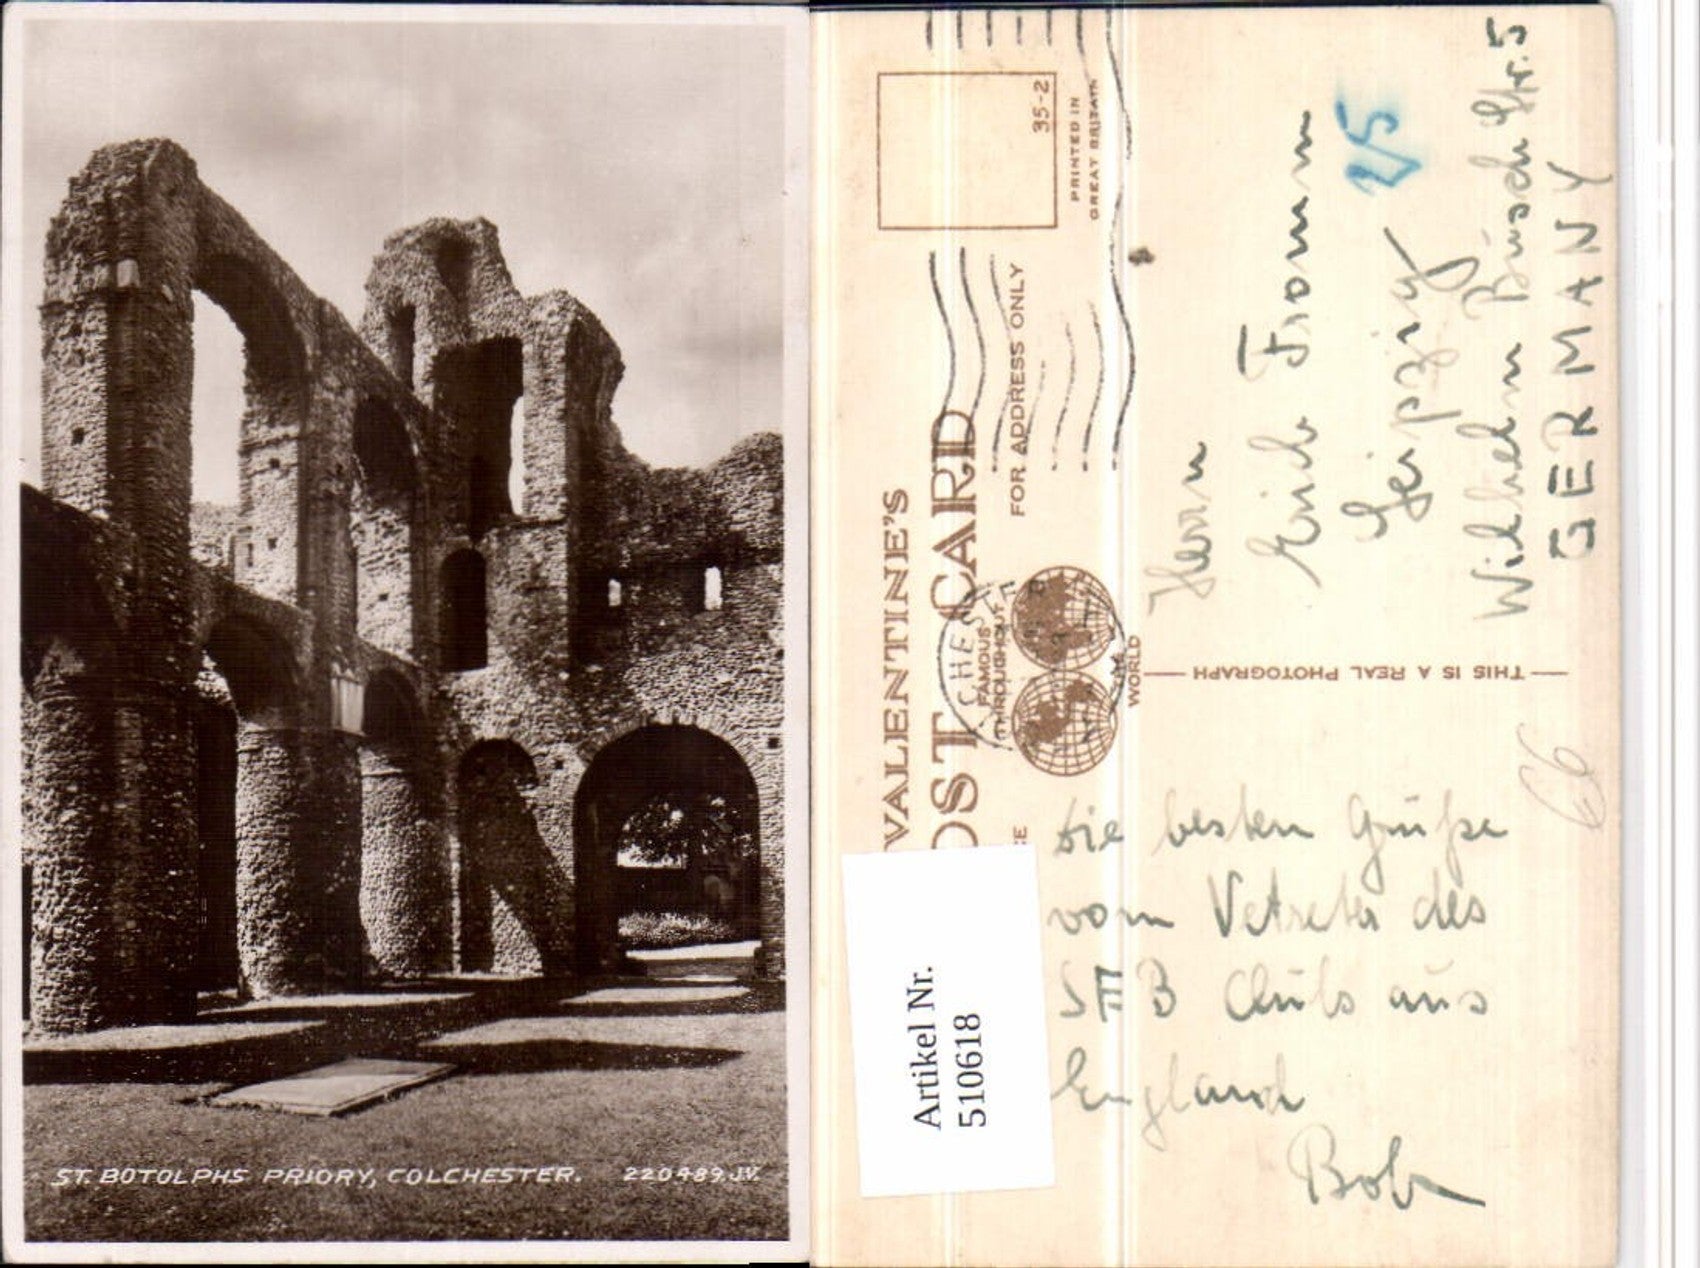 ST. BOTOLPHS PRIORY, COLCHESTER. 220489.JV.
VALENTINE'S
OST CARD
FOR ADDRESS ONLY
FAMOUS
THROUGHOUT
WORLD
35-2
PRINTED IN
GREAT BRITAIN
THIS IS A REAL PHOTOGRAPH
Herrn
Erich Fromm
Leipzig
Wilhelm Busch Str. 5
GERMANY
25
66
die besten Grüße
vom Vertreter des
Clubs aus
England
Bob
Artikel Nr.
510618